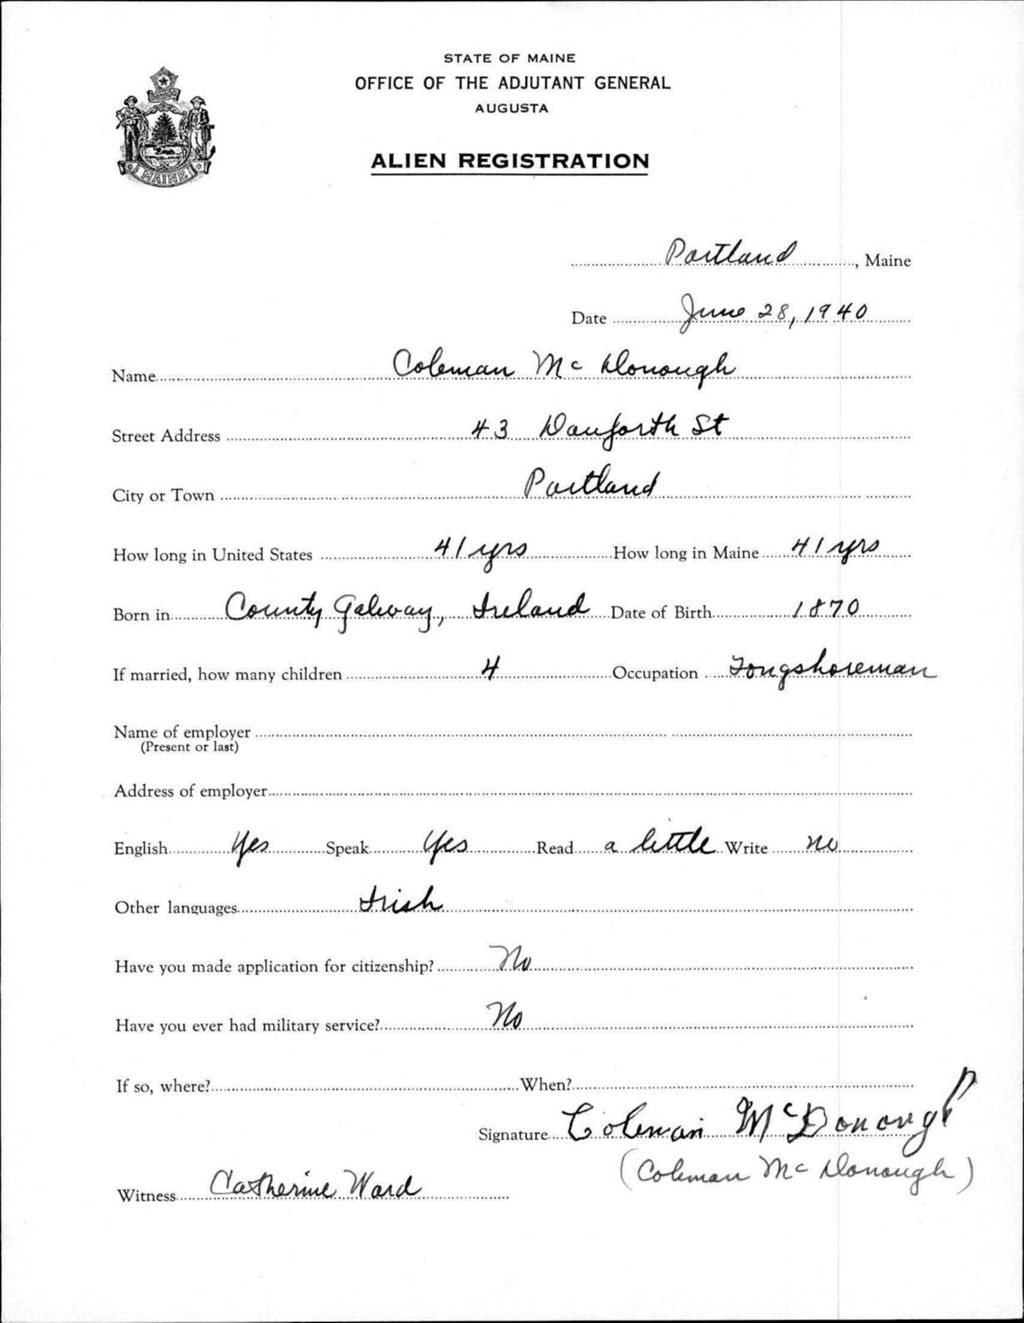 STATE OF MAINE
OFFICE OF THE ADJUTANT GENERAL
AUGUSTA
ALIEN REGISTRATION
MAINE
Portland, Maine
Date June 28, 1940
Name Coleman Mc Donough
Street Address 43 Danforth St
City or Town Portland
How long in United States 41 yrs How long in Maine 41 yrs
Born in County Galway, Ireland Date of Birth 1870
If married, how many children 4 Occupation Longshoreman
Name of employer
(Present or last)
Address of employer
English Yes Speak Yes Read a little Write no
Other languages Irish
Have you made application for citizenship? No
Have you ever had military service? No
If so, where? When?
Signature Coleman McDonough
(Coleman Mc Donough)
Witness Catherine Ward